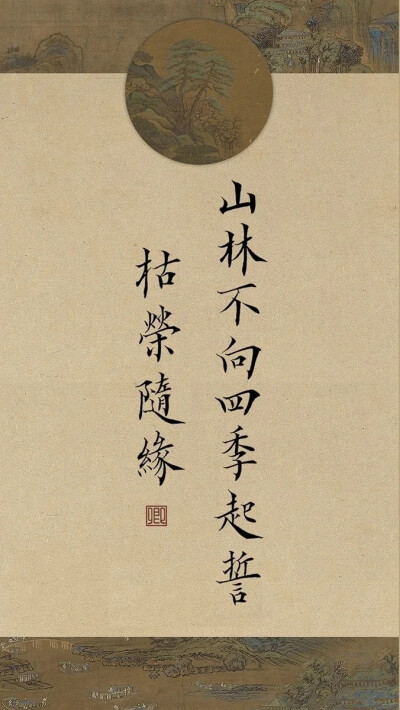 山林不向四季起誓
枯榮隨緣
卿